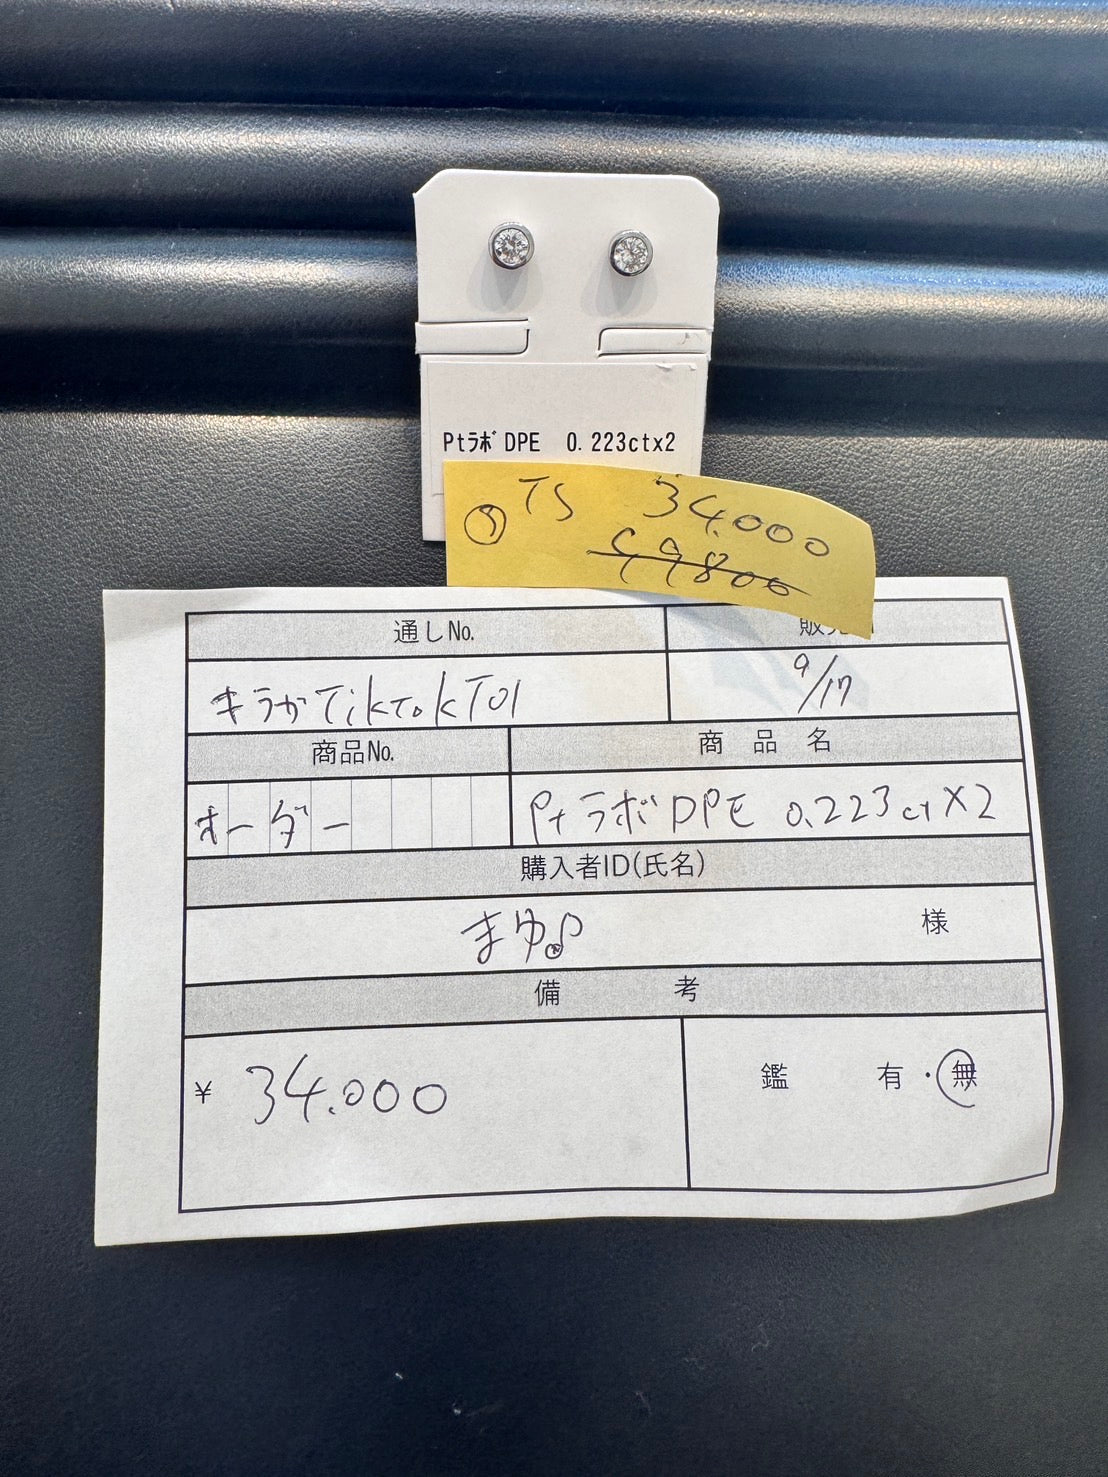 Ptラボ DPE 0.223ctx2
TS 34.000
49800
通しNo.
キラガTikTok T01
9/17
商品No.
商品名
オーダー
Ptラボ DPE 0.223ct×2
購入者ID(氏名)
まゆ
様
備考
¥ 34.000
鑑 有・無